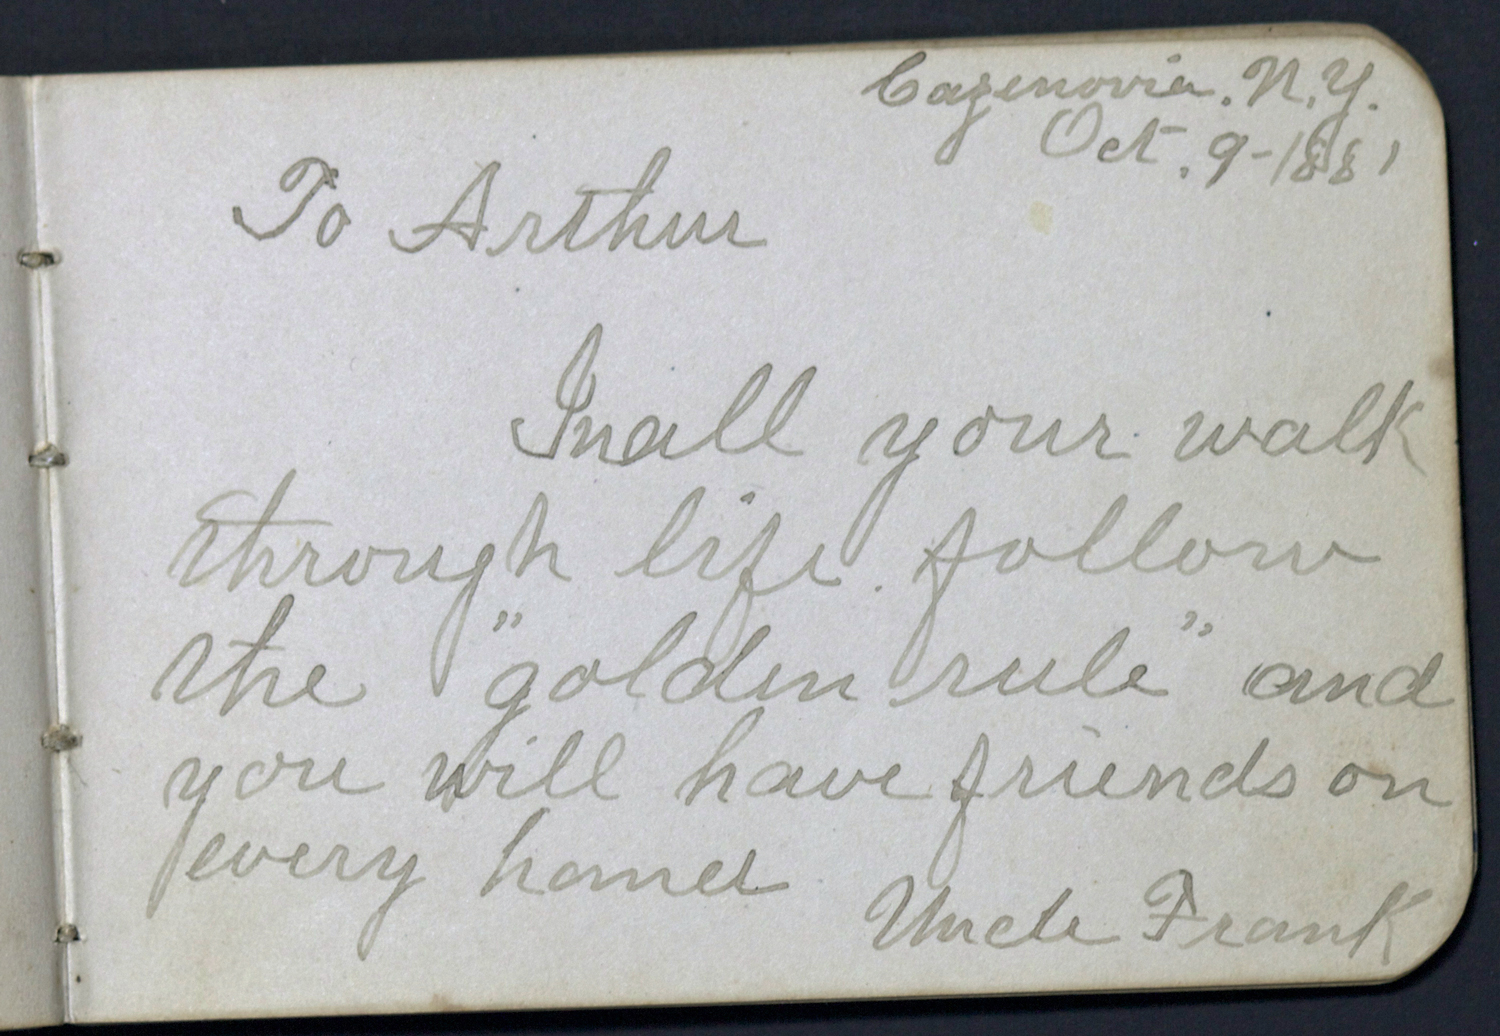 Cazenovia. N.Y.
Oct. 9-1881
To Arthur
In all your walk
through life. follow
the "golden rule" and
you will have friends on
every hand
Uncle Frank